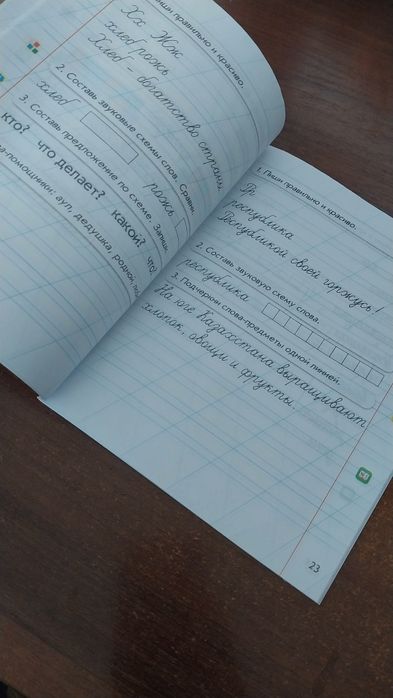 пиши правильно и красиво.
Хх Жж
хлеб рожь
Хлеб - богатство страны
2. Составь звуковые схемы слов. Сравни
хлеб
рожь
3. Составь предложение по схеме. Запиши
кто? что делает? какой? что?
а-помощники: аул, дедушка, родной,
1. Пиши правильно и красиво.
республика
Республикой своей горжусь!
2. Составь звуковую схему слова.
республика
3. Подчеркни слова-предметы одной линией.
На юге Казахстана выращивают
хлопок, овощи и фрукты.
23